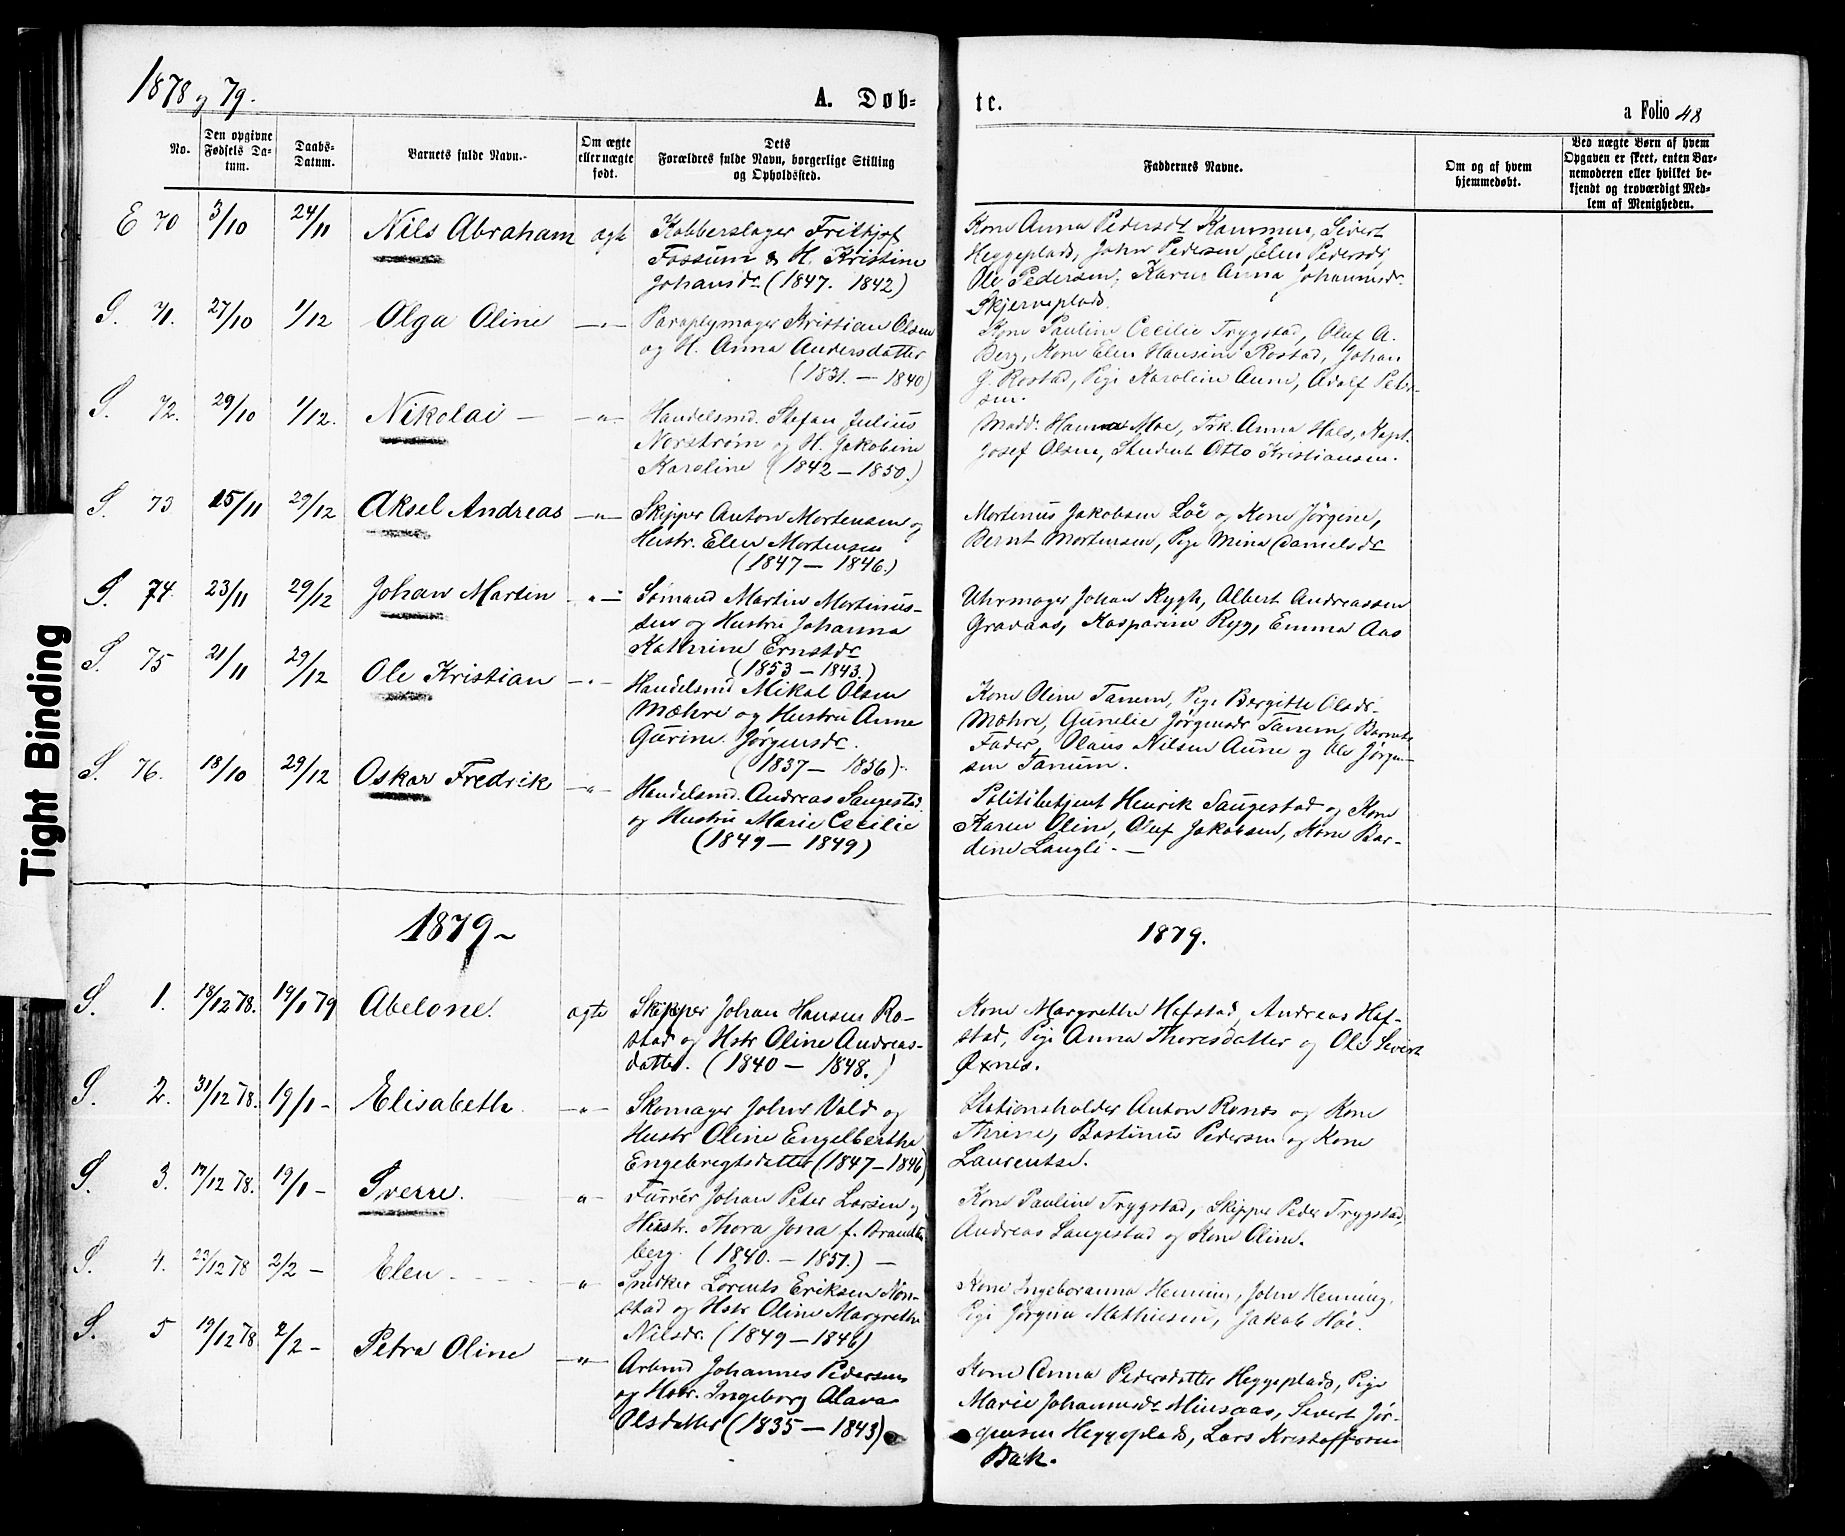 1878 og 79.
A. Døb-
te.
a Folio 48
No.
Den opgivne Fødsels Datum.
Daabs-Datum.
Barnets fulde Navn.
Om ægte eller uægte født.
Dets Forældres fulde Navn, borgerlige Stilling og Opholdssted.
Faddernes Navne.
Om og af hvem hjemmedøbt.
Ved uægte Børn af hvem Opgaven er skeet, enten Barnemoderen eller hvilket bekjendt og troværdigt Medlem af Menigheden.
E 70 3/10 24/11 Nils Abraham ægte Kobberslager Fritjof
Fossum & H. Kristine
Johansdr (1847. 1842)
Kone Anna Pedersdr Sivert
Heggeplads, John Pedersen, Elen Pedersdr,
Ole Pedersen, Karen Anna Johannesdr
Skjerveplads.
S. 71. 27/10 1/12 Olga Oline —"— Paraplymager Kristian Olsen
og H. Anna Andersdatter
(1831. — 1840)
Kone Pauline Cecilie Trygstad, Oluf A.
Berg, Kone Elen Hansine Rostad, Johan
J. Rostad, Pige Karoline Aune, Adolf Peter-
sen.
S. 72. 29/10 1/12. Nikolai — —"— Handelsmd. Stefan Julius
Norstrøm og H. Jakobine
Karoline (1842 — 1850.)
Madd. Hanna Moe, Frk. Anna Hals, Kapt.
Josef Olsen, Student Otto Kristiansen.
S. 73 15/11 29/12 Aksel Andreas —"— Skipper Anton Mortensen og
Hustr. Elen Mortensen
(1847 — 1846.)
Mortinus Jakobsen Löe og Kone Jørgine,
Bernt Mortensen, Pige Mina Danielsdr
S. 74. 23/11 29/12 Johan Martin —"— Sømand Martin Mortinus-
sen og Hustru Johanna
Kathrine Ernstdr
(1853 — 1843.)
Uhrmager Johan Rygh, Albert Andreassen
Gravaas, Kasparine Ryg, Emma Aas
S. 75 21/11 29/12 Ole Kristian —"— Handelsmd Mikal Olsen
Mæhre og Hustru Anne
Gurine Jørgensdr.
(1837 — 1836).
Kone Oline Tanem, Pige Bergitte Olsdr
Mæhre, Gunelie Jørgensdr Tanem, Barnets
Fader, Olaus Nilsen Aune og Ole Jørgen-
sen Tanum.
S. 76. 18/10 29/12 Oskar Fredrik —"— Handelsmd. Andreas Saugestad
og Hustru Marie Cecilie
(1849 — 1849)
Politibetjent Henrik Saugestad og Kone
Karen Oline, Oluf Jakobsen, Kone Bar-
dine Langli. —
1879 ~
1879.
S. 1. 18/12 78. 19/1 79 Abelone. ægte Skipper Johan Hansen Ro-
stad og Hstr Oline Andreas-
datter. (1840 — 1848.)
Kone Margrethe Hafstad, Andreas Haf-
stad, Pige Anna Thoresdatter og Ole Sivert
Øxnes.
S. 2. 31/12 78. 19/1 — Elisabeth. —"— Skomager Johan Vold og
Hustr Oline Engelbertha
Engebregtsdatter (1847 — 1846)
Stationsholder Anton Renaas og Kone
Thrine, Bastinus Pedersen og Kone
Laurentse.
S. 3. 17/12 78. 19/1 — Sverre. " Furrér Johan Peter Larsen og
Hustr. Thora Jona f. Brandt
berg. (1840. — 1851.) —
Kone Pauline Trygstad, Skipper Peder Trygstad,
Andreas Saugestad og Kone Oline.
S. 4. 23/12 78 2/2 — Elen. " Snekker Lorents Eriksen Non-
stad og Hstr Oline Margrethe
Nilsdr. (1849 — 1846)
Kone Ingeboranna Henning, John Henning,
Pige Jørgine Mathiesen, Jakob Höe.
S. 5 19/12 78 2/2 — Petra Oline —"— Arbmd Johannes Pedersen
og Hstr. Ingeborg Olava
Olsdatter (1835 — 1843)
Kone Anna Pedersdatter Heggeplads, Pige
Marie Johannesdr Minsaas, Sivert Jør-
gensen Heggeplads, Lars Kristoffersen
Bak.
Tight Binding